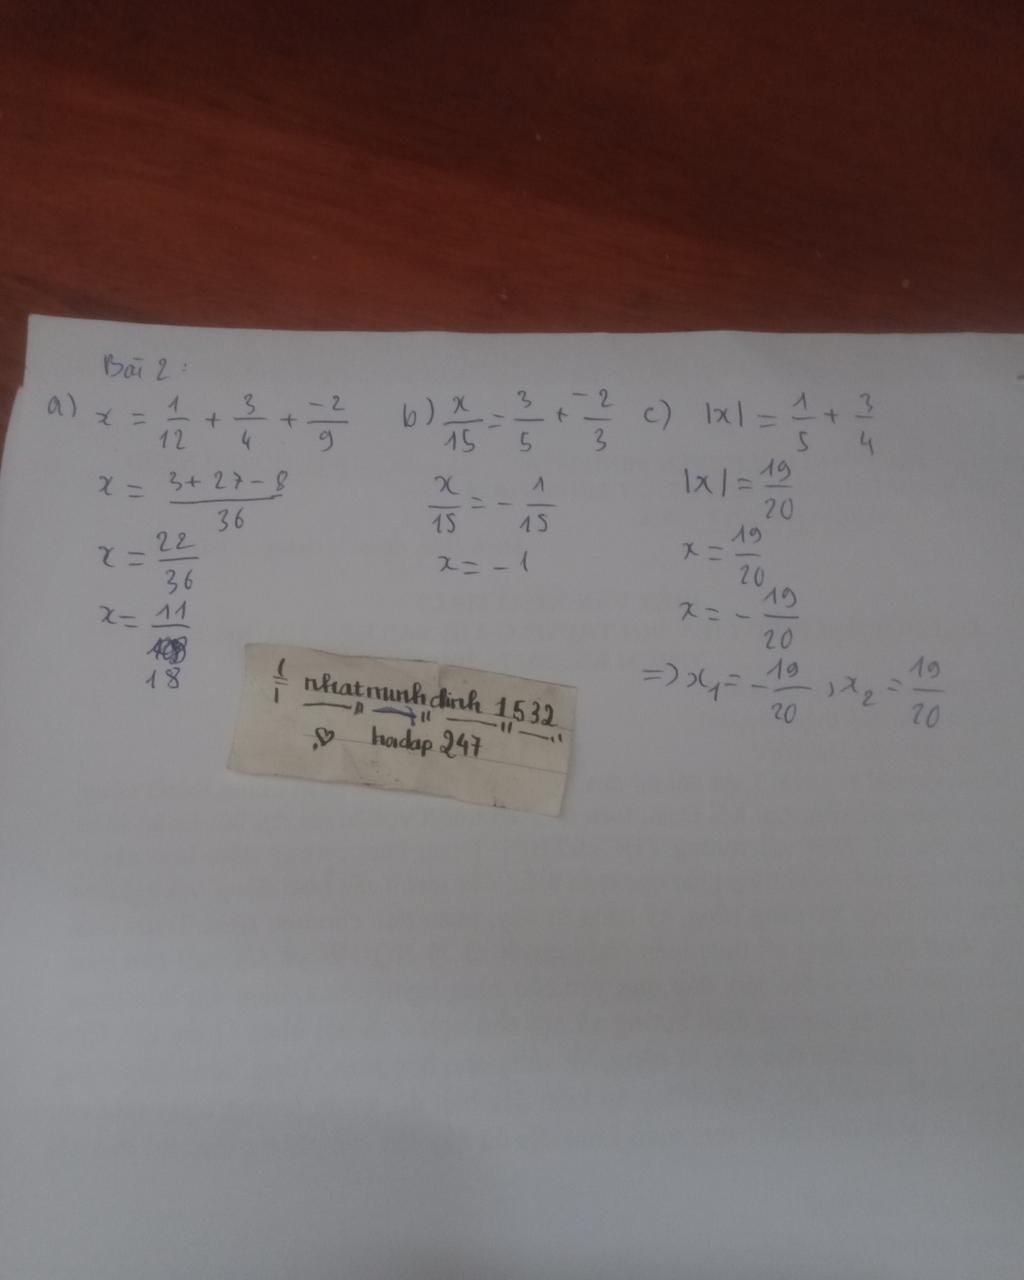 Bài 2:
a) x = 1/12 + 3/4 + -2/9
x = 3+27-8/36
x = 22/36
x = 11/18
b) x/15 = 3/5 + -2/3
x/15 = -1/15
x = -1
c) |x| = 1/5 + 3/4
|x| = 19/20
x = 19/20
x = -19/20
=> x₁ = -19/20, x₂ = 19/20
nhatminhdinh 1532
hoidap 247